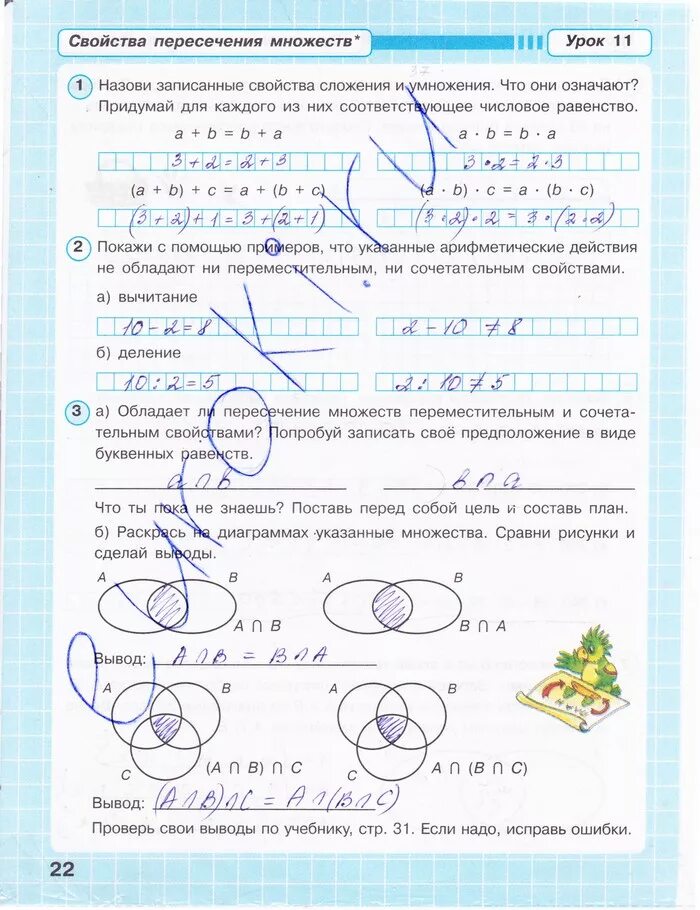 Свойства пересечения множеств*
Урок 11
37
1 Назови записанные свойства сложения и умножения. Что они означают?
Придумай для каждого из них соответствующее числовое равенство.
a + b = b + a
a · b = b · a
3 + 2 = 2 + 3
3 · 2 = 2 · 3
(a + b) + c = a + (b + c)
(a · b) · c = a · (b · c)
(3 + 2) + 1 = 3 + (2 + 1)
(3 · 2) · 2 = 3 · (2 · 2)
2 Покажи с помощью примеров, что указанные арифметические действия
не обладают ни переместительным, ни сочетательным свойствами.
а) вычитание
10 - 2 = 8
2 - 10 ≠ 8
б) деление
10 : 2 = 5
2 : 10 ≠ 5
3 а) Обладает ли пересечение множеств переместительным и сочета-
тельным свойствами? Попробуй записать своё предположение в виде
буквенных равенств.
a ∩ b
b ∩ a
Что ты пока не знаешь? Поставь перед собой цель и составь план.
б) Раскрась на диаграммах указанные множества. Сравни рисунки и
сделай выводы.
A B A B
A ∩ B B ∩ A
Вывод: A ∩ B = B ∩ A
A B A B
C (A ∩ B) ∩ C C A ∩ (B ∩ C)
Вывод: (A ∩ B) ∩ C = A ∩ (B ∩ C)
Проверь свои выводы по учебнику, стр. 31. Если надо, исправь ошибки.
22